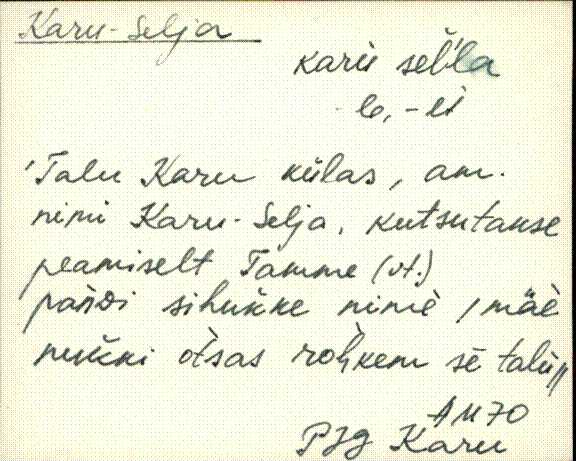 Karu-Selja
karu sel'la
-le, -lt
'Talu Karu külas, am.
nimi Karu-Selja, kutsutakse
peamiselt Tamme (vt.)
pandi sihukke nimè, mäè
nukki òtsas rohkem sè talu"
AM70
Pjg Karu